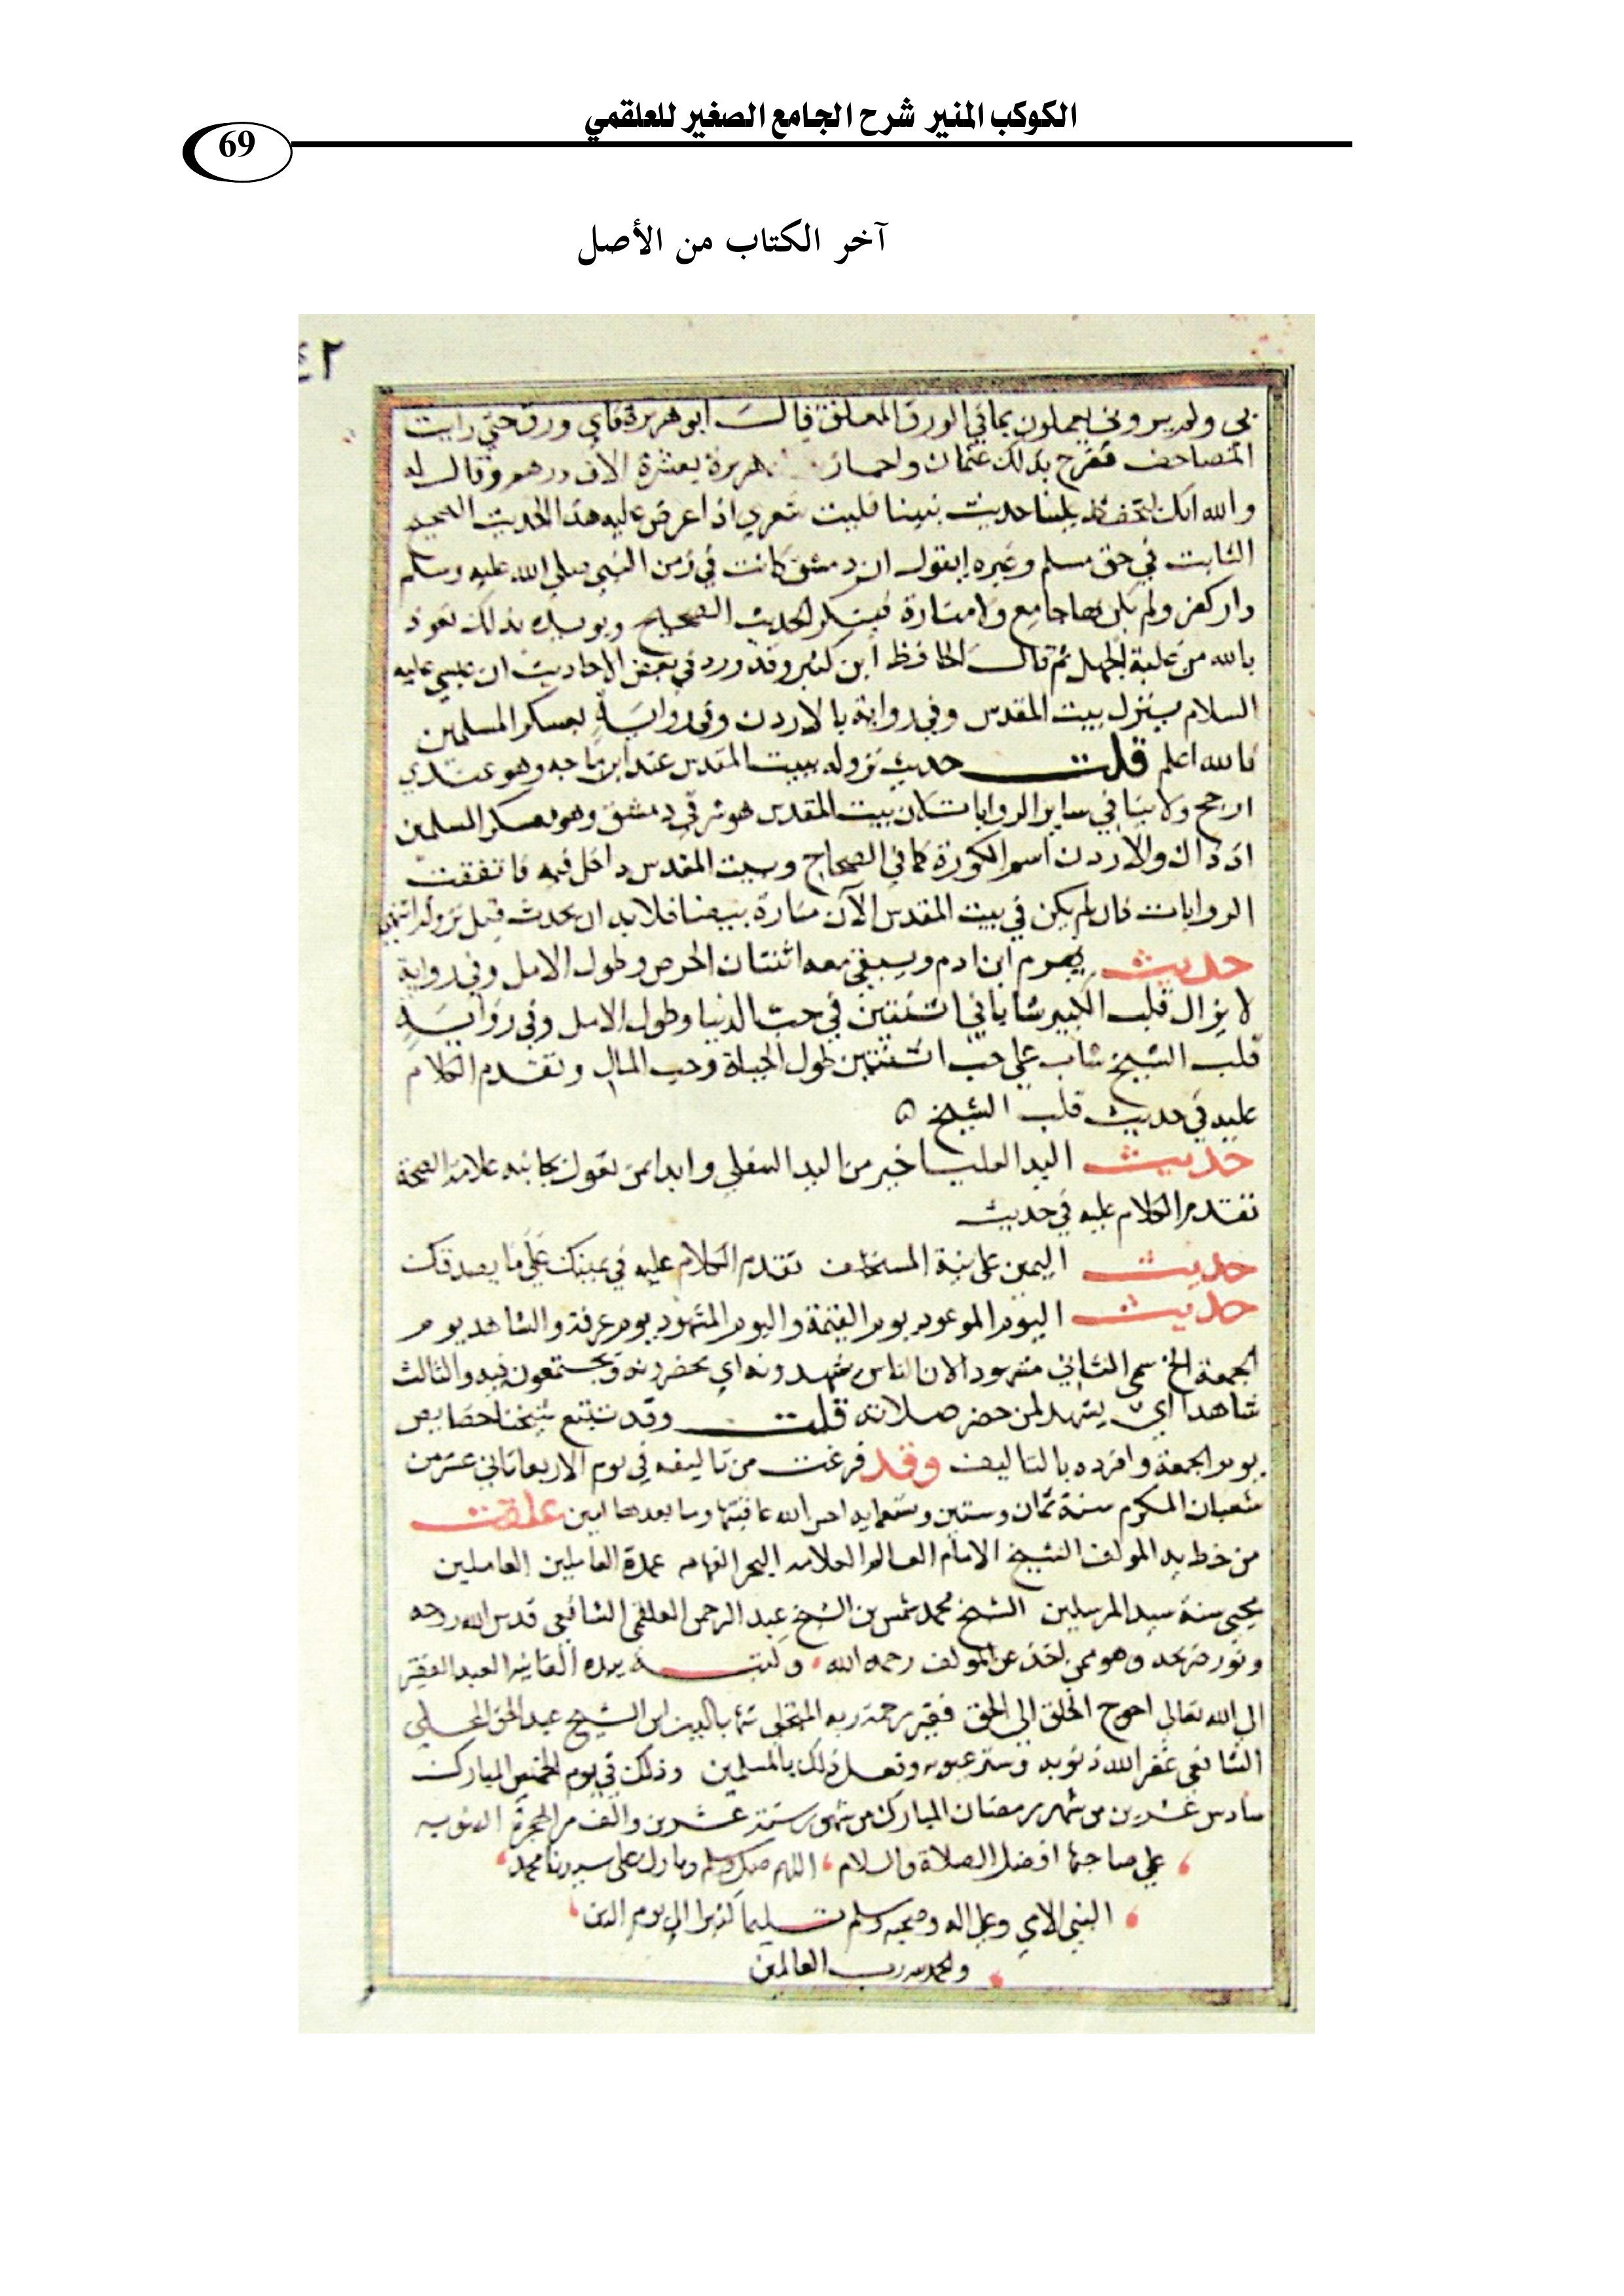 الكوكب المنير شرح الجامع الصغير للعلقمي
69
آخر الكتاب من الأصل
٤٢
بي ولم يروني يعملون بما في الورق المعلق قالـــ ابو هريرة فاي ورق حتي رايت
المصاحف ففرح بذلك عثمان واجاز هريرة بعشرة الاف درهم وقال له
والله انك لتحفظ علينا حديث نبينا فليت شعري اذا عرض عليه هذا الحديث الصحيح
الثابت في حق مسلم وغيره ايقول ان دمشق كانت في زمن النبي صلي الله عليه وسلم
دار كفر ولم يكن بها جامع ولا منارة فينكر الحديث الصحيح بذلك نعوذ
بالله من غلبة الجهل ثم قالـــ الحافظ ابن كثير وقد ورد في بعض الاحاديث ان عيسي عليه
السلام ينزل ببيت المقدس وفي رواية بالاردن وفي رواية بعسكر المسلمين
فالله اعلم قلتـــ حديث نزوله ببيت المقدس عند ابن ماجه وهو عندي
ارجح ولا ينافي ساير الروايات لان بيت المقدس هو شرقي دمشق وهو معسكر المسلمين
اذ ذاك والاردن اسم الكورة كما في الصحاح وبيت المقدس داخل فيه فاتفقت
الروايات فان لم يكن في بيت المقدس الآن منارة بيضا فلا بد ان تحدث قبل نزوله انتهي
حديث يهرم ابن ادم ويبقي معه اثنتان الحرص وطول الامل وفي رواية
لا يزال قلب الكبير شابا في اثنتين في حب الدنيا وطول الامل وفي رواية
قلب الشيخ شاب علي حب اثنتين طول الحياة وحب المال وتقدم الكلام
عليه في حديث قلب الشيخ ٥
حديث اليد العليا خير من اليد السفلي وابدا بمن تعول بجانبه علامة الصحة
تقدم الكلام عليه في حديث
حديث اليمين علي نية المستحلف تقدم الكلام عليه في يمينك علي ما يصدقك
حديث اليوم الموعود يوم القيمة واليوم المشهود يوم عرفة والشاهد يوم
الجمعة الخ سمي الثاني مشهودا لان الناس يشهدونه اي يحضرونه ويجتمعون فيه والثالث
شاهدا اي يشهد لمن حضر صلاته قلتـــ وقد تتبع شيخنا خصايص
يوم الجمعة وافرده بالتاليف وقد فرغت من تاليفه في يوم الاربعا ثاني عشر من
شعبان المكرم سنة ثمان وستين وتسعمايه احسن الله عاقبتها وما بعدها امين علقت
من خط يد المولف الشيخ الامام العالم العلامه البحر الفهامه عمدة العاملين
محيي سنة سيد المرسلين الشيخ محمد شمس بن الشيخ عبد الرحمن العلقمي الشافعي قدس الله روحه
ونور ضريحه وهو ممن اخذ عن المولف رحمه الله وكتبـــه بيده الفانيه العبد الفقير
الي الله تعالي احوج الخلق الي الحق فقير رحمة ربه ابن الشيخ عبد الحق المحلي
الشافعي غفر الله ذنوبه وستر عيوبه وفعل ذلك بالمسلمين وذلك في يوم الخميس المبارك
سادس عشرين من شهر رمضان المبارك من شهور سنة عشرين والف من الهجرة النبويه
علي صاحبها افضل الصلاة والسلام اللهم صل وسلم وبارك علي سيدنا محمد
النبي الامي وعلي اله وصحبه وسلم تسليما كثيرا الي يوم الدين
والحمد لله رب العالمين